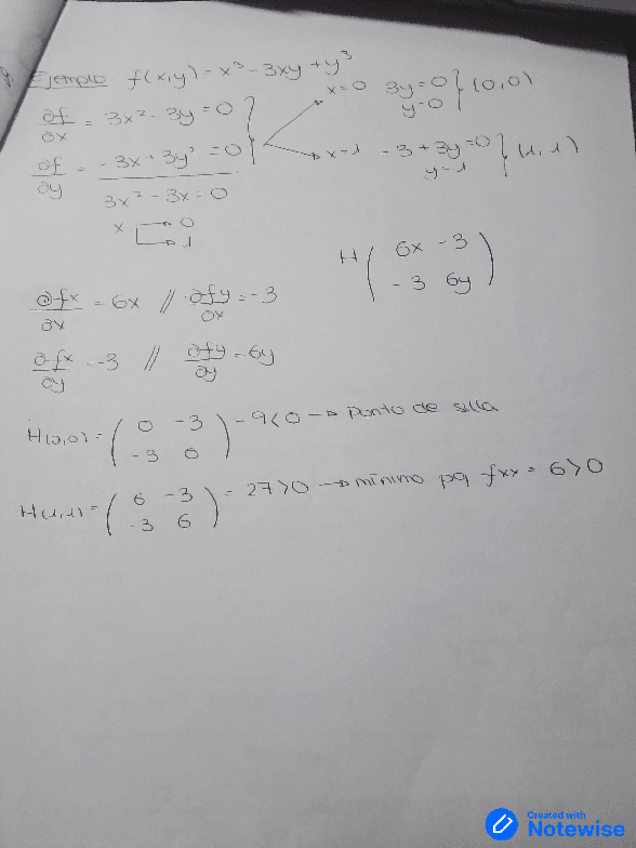 Ejemplo f(x,y) = x³ - 3xy + y³
∂f/∂x = 3x² - 3y = 0
x=0 3y=0 } (0,0)
y=0
∂f/∂y = -3x + 3y² = 0
x=1 -3+3y=0 } (1,1)
y=1
3x² - 3x = 0
x → 0
→ 1
H ( 6x -3
-3 6y )
∂fx/∂x = 6x // ∂fy/∂x = -3
∂fx/∂y = -3 // ∂fy/∂y = 6y
H(0,0) = ( 0 -3
-3 0 ) = -9<0 → punto de silla
H(1,1) = ( 6 -3
-3 6 ) = 27>0 → mínimo pq fxx = 6>0
Created with
Notewise